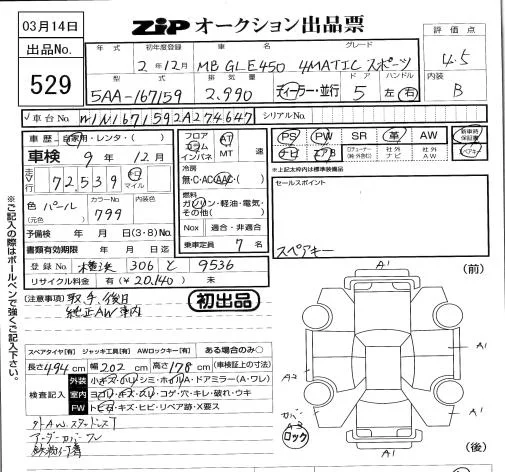 03月14日
ZiP オークション出品票
出品No.
529
評価点
4.5
内装
B
年式 初年度登録 車名 グレード
2年12月 MB GLE450 4MATIC スポーツ
型式 排気量 ドア ハンドル
5AA-167159 2.990 ディーラー・並行 5 左 右
✓車台No. W1N1671592A274647 シリアルNo.
車歴 自家用・レンタ・( )
車検 9年 12月
走行 72,539 キロ マイル
色 パール
(元色)
カラーNo.
799
内装色
予備検 年 月 日(3・8)No.
書類有効期限 年 月 日
登録No. 横浜 306 と 9536
リサイクル料金 有(¥20,140) 未
フロア コラム インパネ AT MT 速
冷房
無・C・AC・AAC・( )
燃料
ガソリン・軽油・電気・その他( )
Nox 適合・非適合
乗車定員 7名
PS PW SR 革 AW
ナビ エアB 社外ナビ 社外AW
新車時保証書
※上記太枠内は標準装備品
セールスポイント
スペアキー
(注意事項) 取・予、後日
純正AW車内
初出品
スペアタイヤ[有] ジャッキ工具[有] AWロックキー[有] ある場合のみ○
長さ 494cm 幅 202cm 高さ 178cm (車検証上の寸法)
検査記入
外装 小キズ・ハリ・シミ・ホイルA・ドアミラー(A・ワレ)
室内 ヨゴレ・キズ・スリ・コゲ・穴・キレ・破れ・ウキ
FW トビ石・キズ・ヒビ・リペア跡・X要ス
外AW、スタッドレス
アンダーカバーワレ
(前)
A1
A1
A2
A1
カバー
A3
ロック
A1
(後)
※ご記入の際はボールペンで強くご記入下さい。